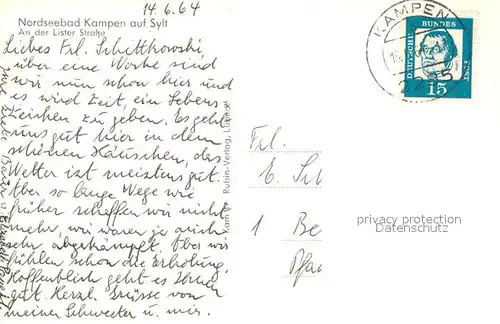 14.6.64
Nordseebad Kampen auf Sylt
An der Lister Straße
Liebes Frl. Schittkowski,
über eine Woche sind
wir nun schon hier und
es wird Zeit, ein Lebens-
zeichen zu geben. Es geht
uns gut hier in dem
schönen Häuschen, das
Wetter ist meistens gut.
Aber so lange Wege wie
früher schaffen wir nicht
mehr, wir waren ja auch
sehr abgekämpft. Aber wir
fühlen schon die Erholung.
Hoffentlich geht es Ihnen
gut. Herzl. Grüsse von
meiner Schwester u. mir.
Rubin-Verlag, Lübeck
KAMPEN
DEUTSCHE BUNDES
15
Frl.
E. Sch
1 Be
Pfa
privacy protection
Datenschutz